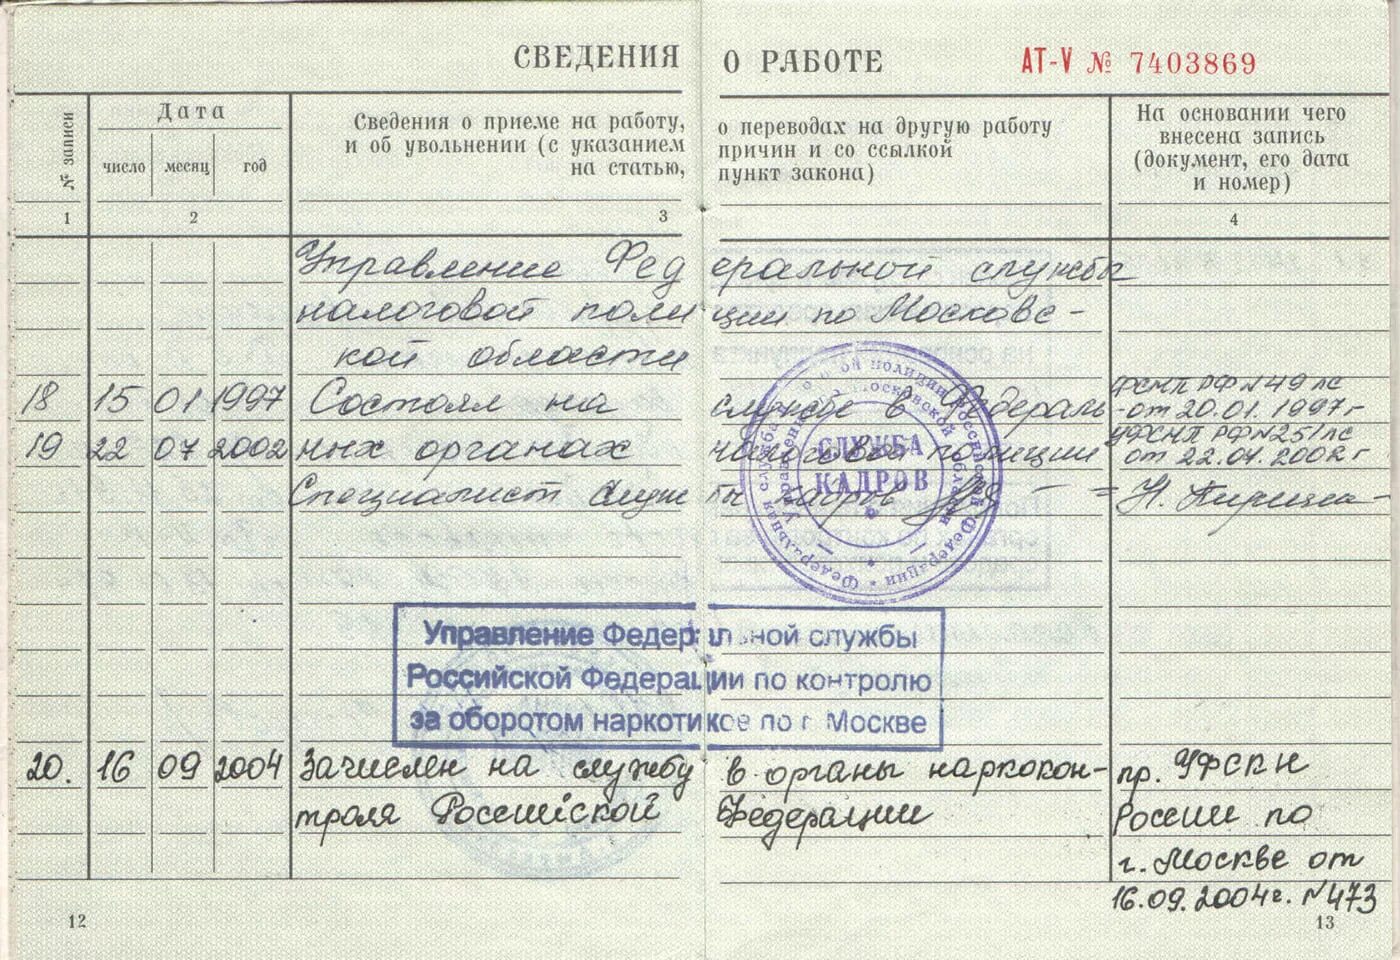 СВЕДЕНИЯ О РАБОТЕ АТ-V № 7403869
№ записи
Дата
число месяц год
Сведения о приеме на работу, о переводах на другую работу
и об увольнении (с указанием причин и со ссылкой
на статью, пункт закона)
На основании чего
внесена запись
(документ, его дата
и номер)
1 2 3 4
Управление Федеральной службы
налоговой полиции по Московс-
кой области
18 15 01 1997 Состоял на службе в Федераль- ФСНП РФ № 49 лс
от 20.01.1997 г
19 22 07 2002 ных органах налоговой полиции УФСНП РФ № 251 лс
от 22.07.2002 г
Специалист службы кадров
СЛУЖБА
КАДРОВ
Управление Федеральной службы
Российской Федерации по контролю
за оборотом наркотиков по г. Москве
20. 16 09 2004 Зачислен на службу в органы наркокон- пр. УФСКН
троля Российской Федерации России по
г. Москве от
16.09.2004г. № 473
12 13